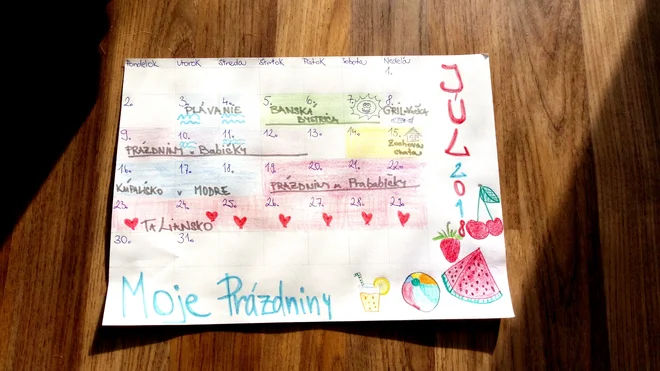 Pondelok Utorok Streda Štvrtok Piatok Sobota Nedeľa
1.
2. 3. 4. 5. 6. 7. 8.
PLÁVANIE BANSKÁ BYSTRICA
9. 10. 11. 12. 13. 14. 15.
PRÁZDNINY u Babičky
16. 17. 18. 19. 20. 21. 22.
KÚPALISKO v MODRE PRÁZDNINY u Prababičky
23. 24. 25. 26. 27. 28. 29.
TALIANSKO
30. 31.
JÚL 2018
Moje Prázdniny